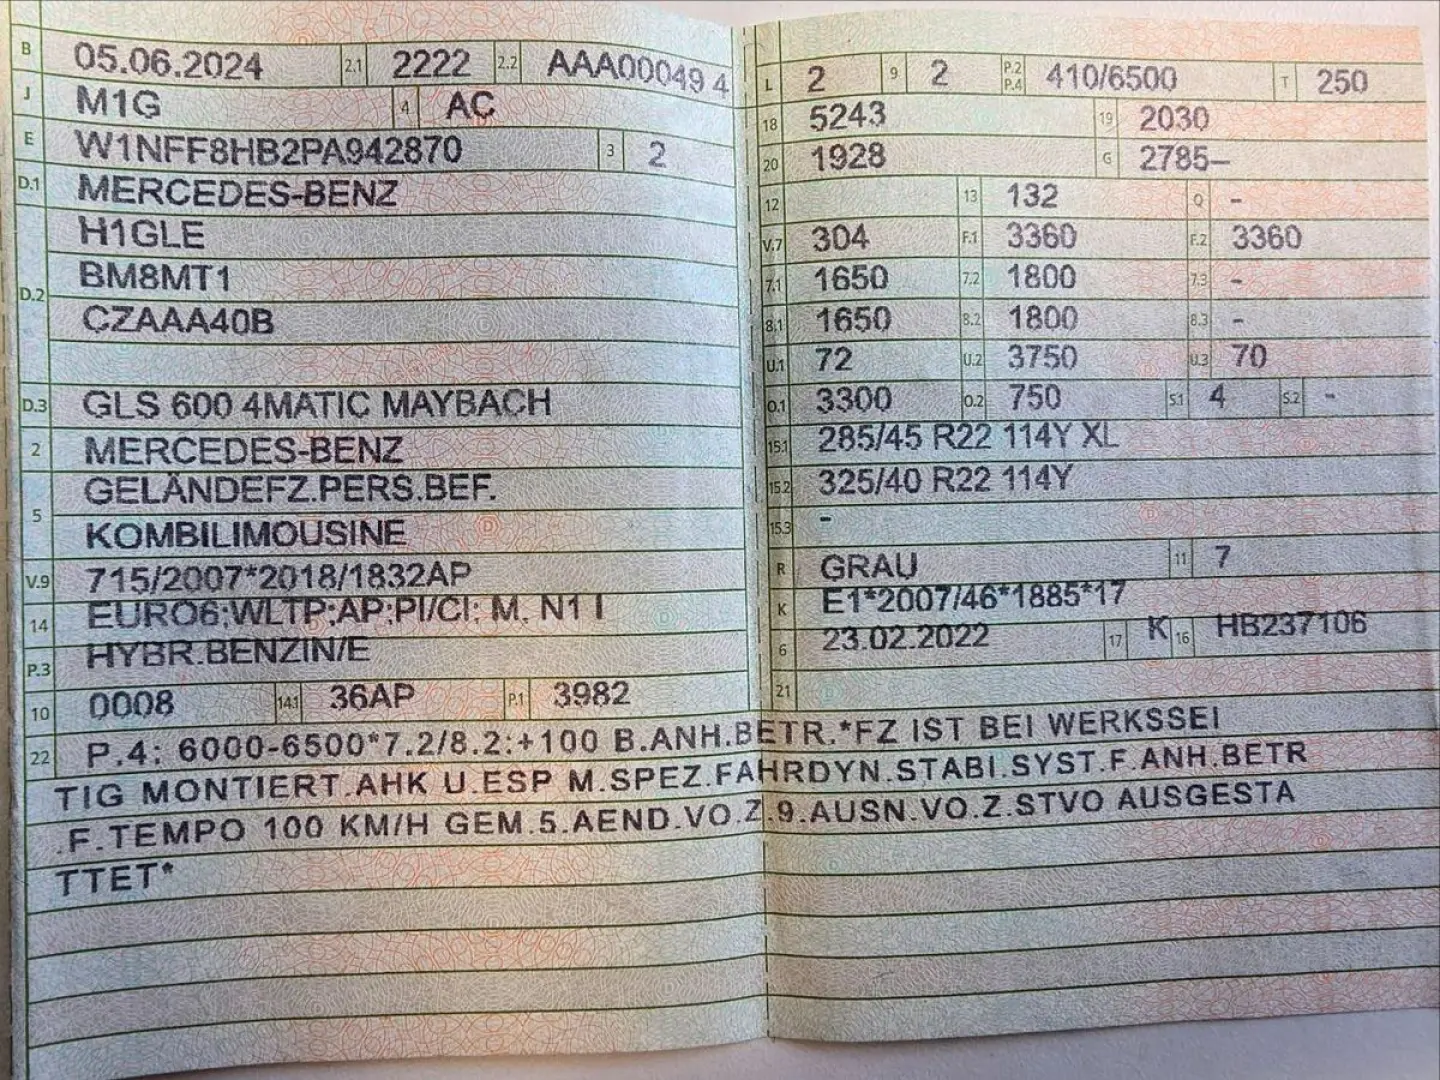 B 05.06.2024 2.1 2222 2.2 AAA00049 4
J M1G 4 AC
E W1NFF8HB2PA942870 3 2
D.1 MERCEDES-BENZ
D.2 H1GLE
BM8MT1
CZAAA40B
D.3 GLS 600 4MATIC MAYBACH
2 MERCEDES-BENZ
5 GELÄNDEFZ.PERS.BEF.
KOMBILIMOUSINE
V.9 715/2007*2018/1832AP
14 EURO6;WLTP;AP;PI/CI; M, N1 I
P.3 HYBR.BENZIN/E
10 0008 14.1 36AP P.1 3982
L 2 9 2 P.2 P.4 410/6500 T 250
18 5243 19 2030
20 1928 G 2785–
12 13 132 Q -
V.7 304 F.1 3360 F.2 3360
7.1 1650 7.2 1800 7.3 -
8.1 1650 8.2 1800 8.3 -
U.1 72 U.2 3750 U.3 70
O.1 3300 O.2 750 S.1 4 S.2 -
15.1 285/45 R22 114Y XL
15.2 325/40 R22 114Y
15.3 -
R GRAU 11 7
K E1*2007/46*1885*17
6 23.02.2022 17 K 16 HB237106
21
22 P.4: 6000-6500*7.2/8.2:+100 B.ANH.BETR.*FZ IST BEI WERKSSEI
TIG MONTIERT.AHK U.ESP M.SPEZ.FAHRDYN.STABI.SYST.F.ANH.BETR
.F.TEMPO 100 KM/H GEM.5.AEND.VO.Z.9.AUSN.VO.Z.STVO AUSGESTA
TTET*